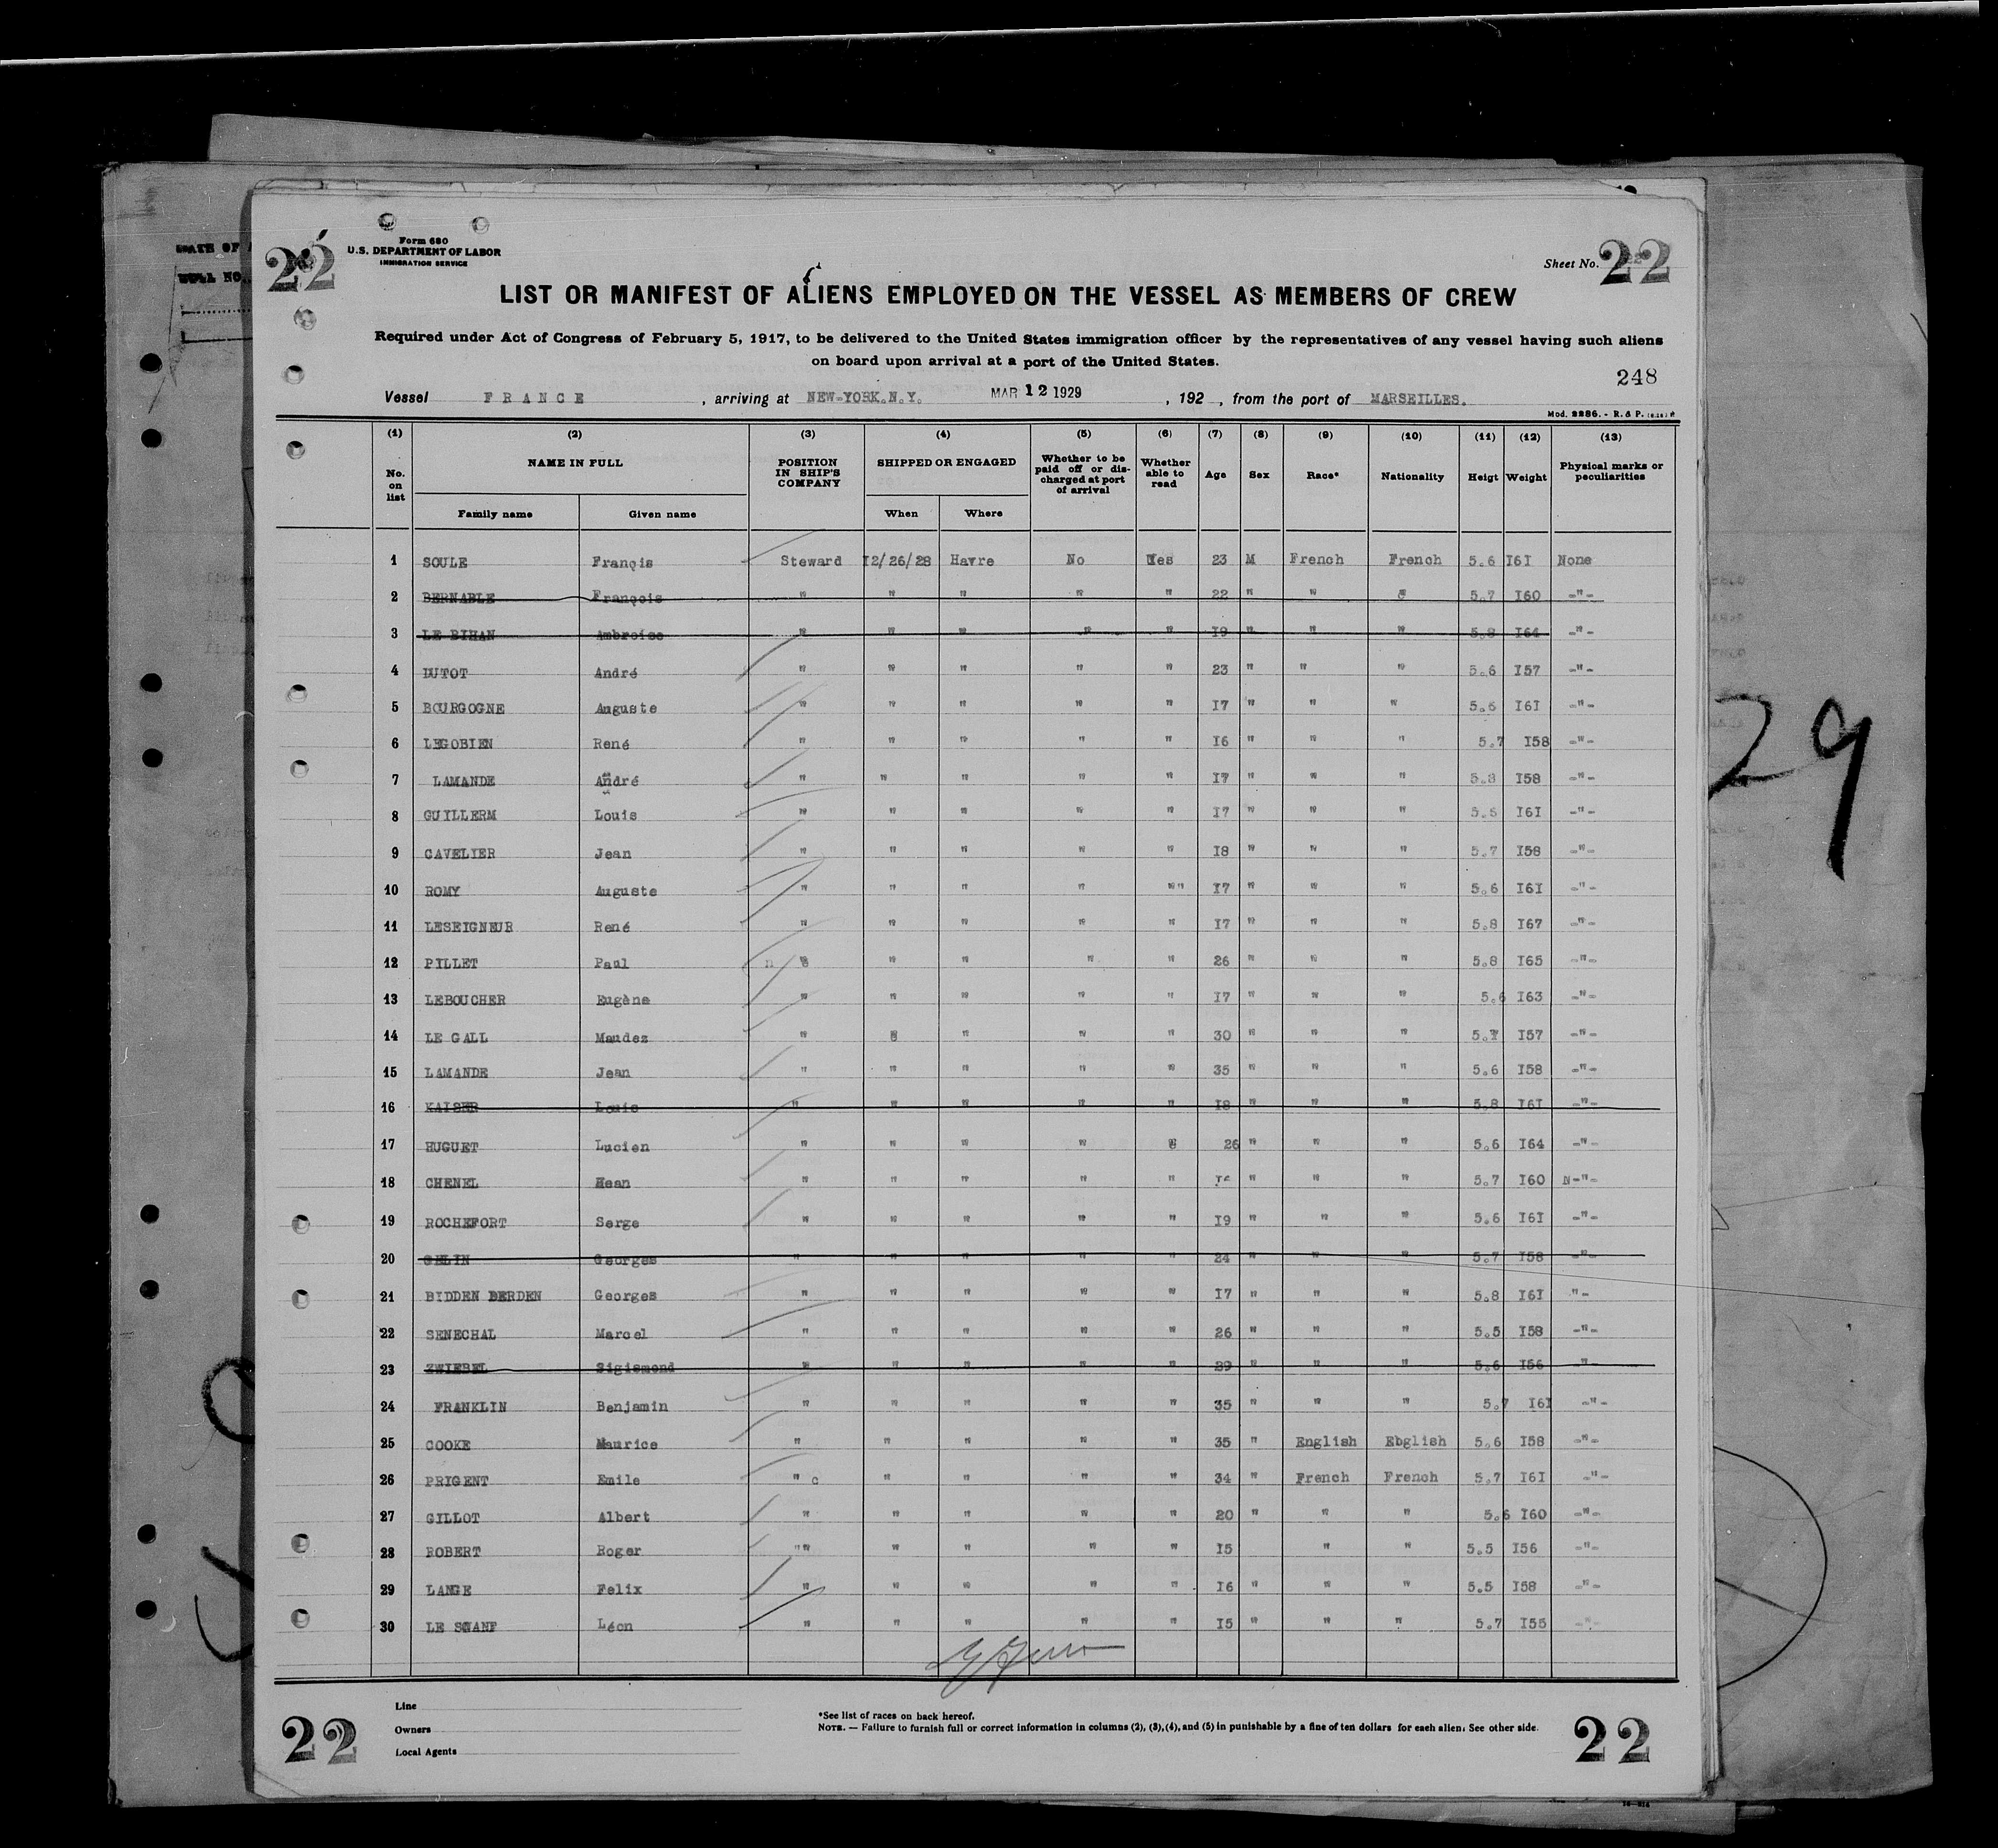 22
Form 680
U.S. DEPARTMENT OF LABOR
IMMIGRATION SERVICE
Sheet No. 22
LIST OR MANIFEST OF ALIENS EMPLOYED ON THE VESSEL AS MEMBERS OF CREW
Required under Act of Congress of February 5, 1917, to be delivered to the United States immigration officer by the representatives of any vessel having such aliens
on board upon arrival at a port of the United States.
248
Vessel FRANCE , arriving at NEW-YORK.N.Y. MAR 12 1929 , 192 , from the port of MARSEILLES.
Mod. 2286. - R. & P.
(1) (2) (3) (4) (5) (6) (7) (8) (9) (10) (11) (12) (13)
No. on list NAME IN FULL POSITION IN SHIP'S COMPANY SHIPPED OR ENGAGED Whether to be paid off or discharged at port of arrival Whether able to read Age Sex Race* Nationality Heigt Weight Physical marks or peculiarities
Family name Given name When Where
1 SOULE Françis Steward I2/26/28 Havre No Yes 23 M French French 5.6 I6I None
2 BERNABLE François " " " " " 22 " " " 5.7 I60 -"-
3 LE BIHAN Ambroise " " " " " I9 " " " 5.8 I64 -"-
4 DUTOT André " " " " " 23 " " " 5.6 I57 -"-
5 BOURGOGNE Auguste " " " " " I7 " " " 5.6 I6I -"-
6 LEGOBIEN René " " " " " I6 " " " 5.7 I58 -"-
7 LAMANDE André " " " " " I7 " " " 5.8 I58 -"-
8 GUILLERM Louis " " " " " I7 " " " 5.5 I6I -"-
9 CAVELIER Jean " " " " " I8 " " " 5.7 I58 -"-
10 ROMY Auguste " " " " "" I7 " " " 5.6 I6I -"-
11 LESEIGNEUR René " " " " " I7 " " " 5.8 I67 -"-
12 PILLET Paul n " " " " " 26 " " " 5.8 I65 -"-
13 LEBOUCHER Eugène " " " " " I7 " " " 5.6 I63 -"-
14 LE GALL Maudez " " " " " 30 " " " 5.7 I57 -"-
15 LAMANDE Jean " " " " " 35 " " " 5.6 I58 -"-
16 KAISER Louis " " " " " I8 " " " 5.8 I6I -"-
17 HUGUET Lucien " " " " " 26 " " " 5.6 I64 -"-
18 CHENEL Hean " " " " " " " " 5.7 I60 N-"-
19 ROCHEFORT Serge " " " " " I9 " " " 5.6 I6I -"-
20 GELIN Georges " " " " " 24 " " " 5.7 I58 -"-
21 BIDDEN BERDEN Georges " " " " " I7 " " " 5.8 I6I "-
22 SENECHAL Marcel " " " " " 26 " " " 5.5 I58 -"-
23 ZWIEBEL Sigismond " " " " " 29 " " " 5.6 I56 -"-
24 FRANKLIN Benjamin " " " " " 35 " " " 5.7 I6I -"-
25 COOKE Maurice " " " " " 35 " English Ebglish 5.6 I58 -"-
26 PRIGENT Emile " c " " " " 34 " French French 5.7 I6I -"-
27 GILLOT Albert " " " " " 20 " " " 5.6 I60 -"-
28 ROBERT Roger "" " " " " I5 " " 5.5 I56 -"-
29 LANGE Felix " " " " " I6 " " " 5.5 I58 -"-
30 LE Léon " " " " " I5 " " " 5.7 I55 -"-
Line
Owners
Local Agents
*See list of races on back hereof.
NOTE. — Failure to furnish full or correct information in columns (2), (3), (4), and (5) in punishable by a fine of ten dollars for each alien. See other side.
22
22
29